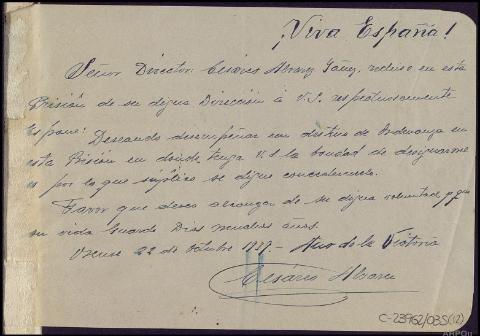 ¡Viva España!
Señor Director: Cesáreo Alvarez Yáñez, recluso en esta
Prisión de su digna Dirección á V.S. respetuosamente
Expone: Deseando desempeñar un destino de Ordenanza en
esta Prisión en donde tenga V.S. la bondad de designarme
es por lo que suplica se digne concedérselo.
Favor que desea alcanzar de su digna voluntad y
su vida Guarde Dios muchos años.
Orense 22 de Octubre 1937.- Año de la Victoria
Cesáreo Alvarez
C-23962/035(12)
AHPOu